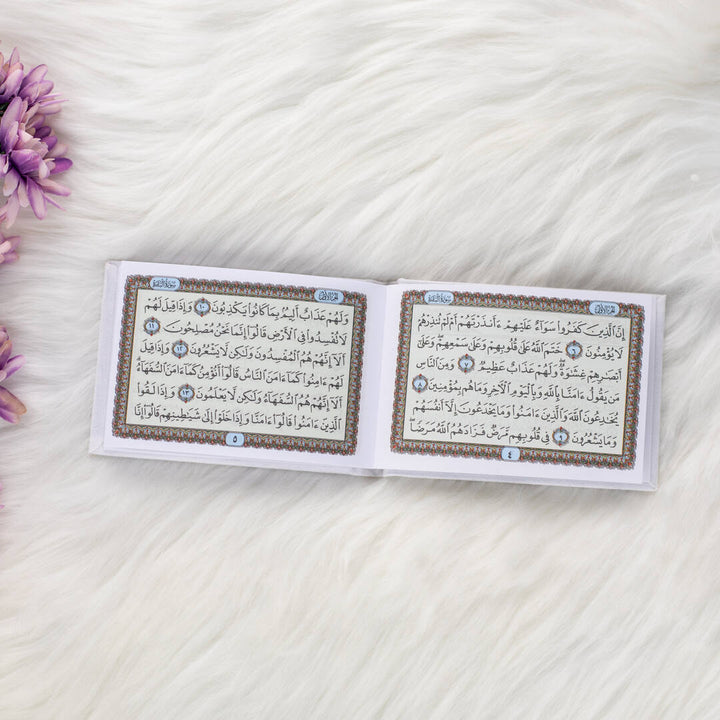 الجزء الأول
سورة البقرة
إِنَّ ٱلَّذِينَ كَفَرُوا۟ سَوَآءٌ عَلَيْهِمْ ءَأَنذَرْتَهُمْ أَمْ لَمْ تُنذِرْهُمْ
لَا يُؤْمِنُونَ ٦ خَتَمَ ٱللَّهُ عَلَىٰ قُلُوبِهِمْ وَعَلَىٰ سَمْعِهِمْ وَعَلَىٰٓ
أَبْصَٰرِهِمْ غِشَٰوَةٌ وَلَهُمْ عَذَابٌ عَظِيمٌ ٧ وَمِنَ ٱلنَّاسِ
مَن يَقُولُ ءَامَنَّا بِٱللَّهِ وَبِٱلْيَوْمِ ٱلْءَاخِرِ وَمَا هُم بِمُؤْمِنِينَ ٨
يُخَٰدِعُونَ ٱللَّهَ وَٱلَّذِينَ ءَامَنُوا۟ وَمَا يَخْدَعُونَ إِلَّآ أَنفُسَهُمْ
وَمَا يَشْعُرُونَ ٩ فِى قُلُوبِهِم مَّرَضٌ فَزَادَهُمُ ٱللَّهُ مَرَضًا
٤
الجزء الأول
سورة البقرة
وَلَهُمْ عَذَابٌ أَلِيمٌۢ بِمَا كَانُوا۟ يَكْذِبُونَ ١٠ وَإِذَا قِيلَ لَهُمْ
لَا تُفْسِدُوا۟ فِى ٱلْأَرْضِ قَالُوٓا۟ إِنَّمَا نَحْنُ مُصْلِحُونَ ١١
أَلَآ إِنَّهُمْ هُمُ ٱلْمُفْسِدُونَ وَلَٰكِن لَّا يَشْعُرُونَ ١٢ وَإِذَا قِيلَ
لَهُمْ ءَامِنُوا۟ كَمَآ ءَامَنَ ٱلنَّاسُ قَالُوٓا۟ أَنُؤْمِنُ كَمَآ ءَامَنَ ٱلسُّفَهَآءُ
أَلَآ إِنَّهُمْ هُمُ ٱلسُّفَهَآءُ وَلَٰكِن لَّا يَعْلَمُونَ ١٣ وَإِذَا لَقُوا۟
ٱلَّذِينَ ءَامَنُوا۟ قَالُوٓا۟ ءَامَنَّا وَإِذَا خَلَوْا۟ إِلَىٰ شَيَٰطِينِهِمْ قَالُوٓا۟ إِنَّا
٥